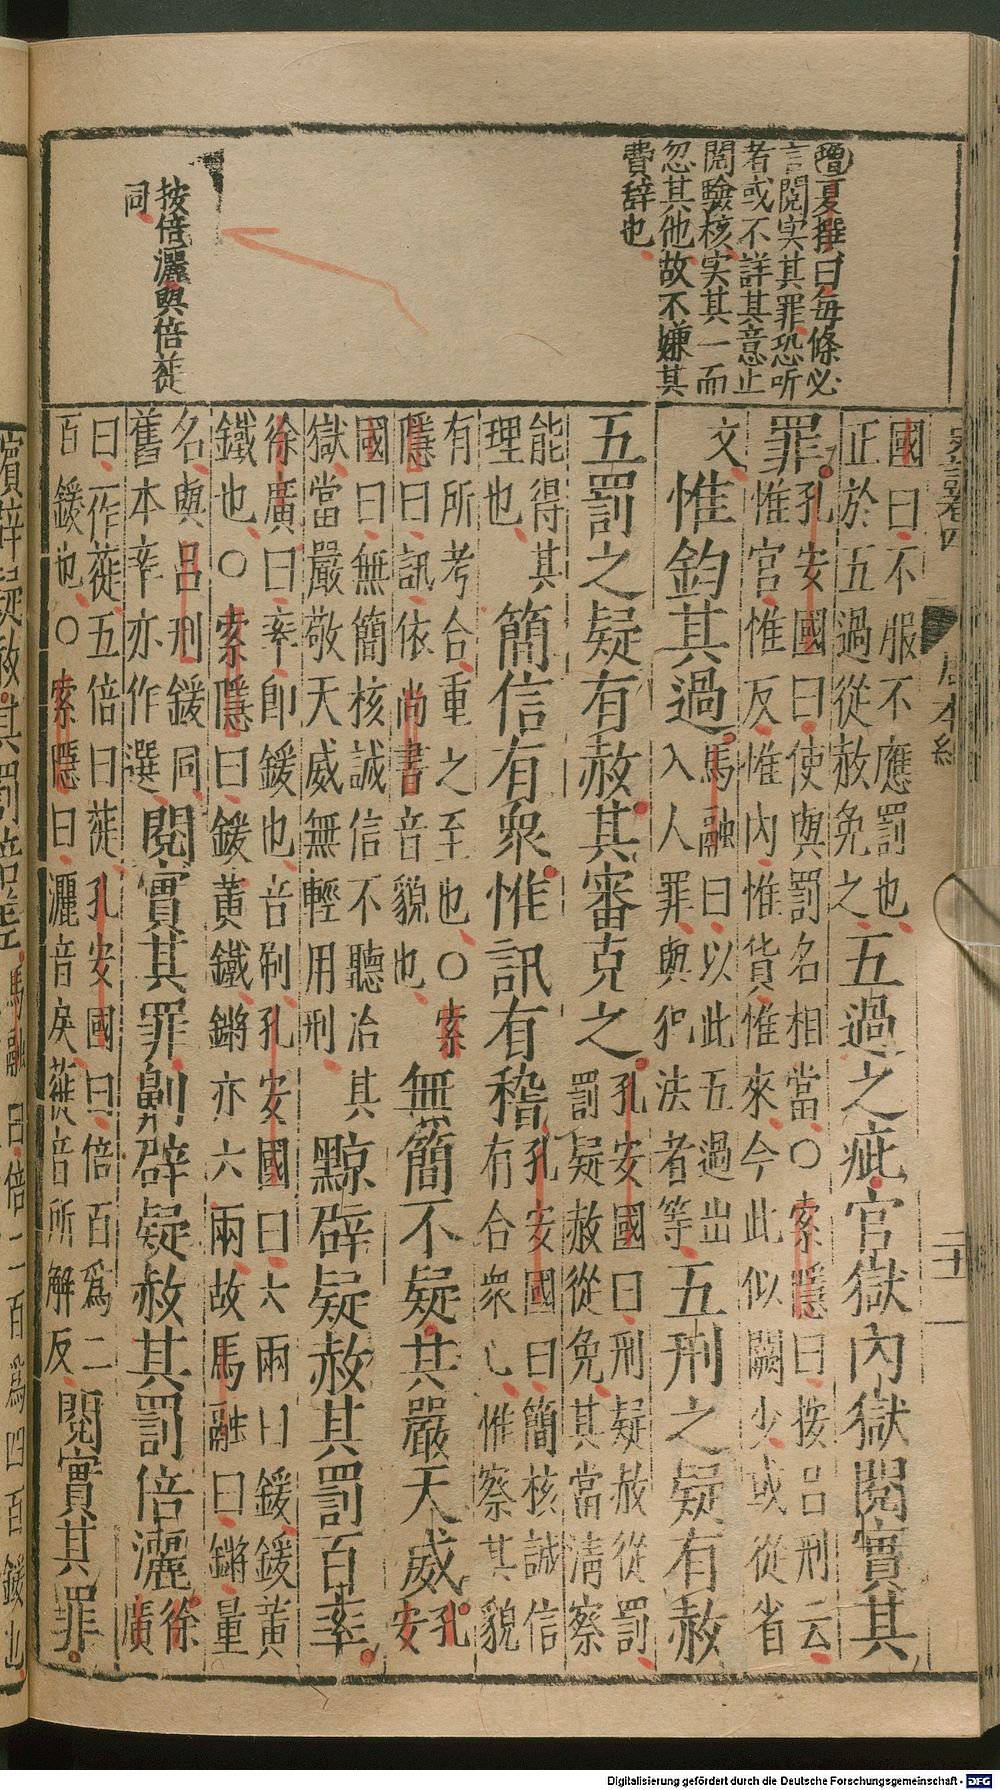 增夏撰曰每條必
言閱实其罪恐听
者或不詳其意止
閱驗核实其一而
忽其他故不嫌其
費辞也
按倍灑與倍蓰
同
卷四 周本紀 二十一
國曰不服不應罰也
正於五過從赦免之
五過之疵官獄內獄閱實其
罪
孔安國曰使與罰名相當○索隱曰按呂刑云
惟官惟反惟內惟貨惟來今此似闕少或從省
文
惟鈞其過
馬融曰以此五過出
入人罪與犯法者等
五刑之疑有赦
五罰之疑有赦其審克之
孔安國曰刑疑赦從罰
罰疑赦從免其當清察
能得其
理也
簡信有衆惟訊有稽
孔安國曰簡核誠信
有合衆心惟察其貌
有所考合重之至也○索
隱曰訊依尚書音貌也
無簡不疑共嚴天威
孔
安
國曰無簡核誠信不聽治其
獄當嚴敬天威無輕用刑
黥辟疑赦其罰百率
徐廣曰率即鍰也音刷孔安國曰六兩曰鍰鍰黃
鐵也○索隱曰鍰黃鐵鏘亦六兩故馬融曰鏘量
名與呂刑鍰同
舊本率亦作選
閱實其罪劓辟疑赦其罰倍灑
徐
廣
曰一作蓰五倍曰蓰孔安國曰倍百爲二
百鍰也○索隱曰灑音戾蓰音所解反
閱實其罪
臏辟疑赦其罰倍差
馬融曰倍二百爲四百鍰也
Digitalisierung gefördert durch die Deutsche Forschungsgemeinschaft - DFG